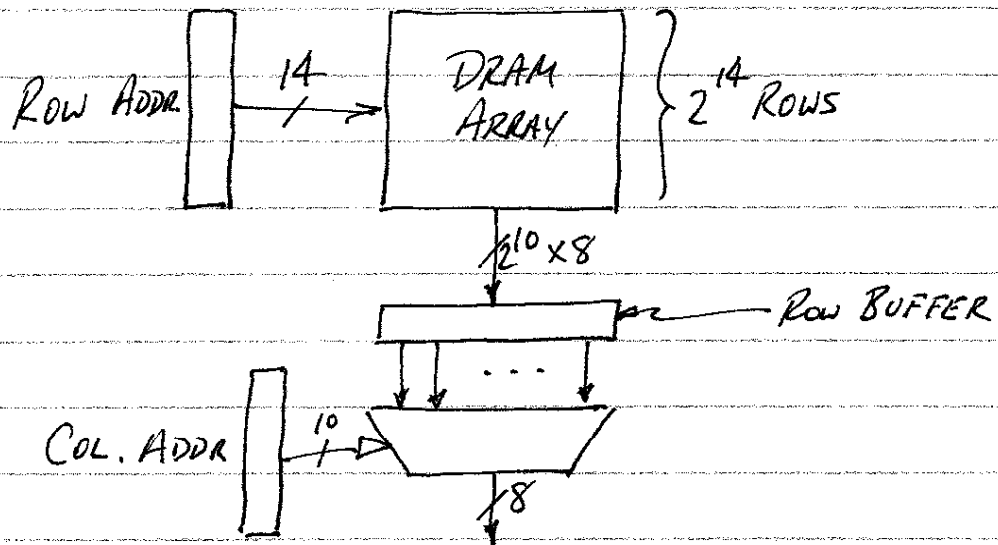 ROW ADDR.
14
DRAM
ARRAY
2^14 ROWS
2^10 x 8
ROW BUFFER
. . .
COL. ADDR
10
8